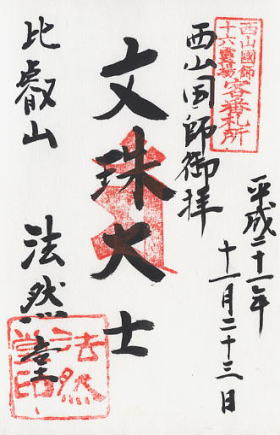 西山國師
十六霊場
客番札所
平成二十一年
十一月二十三日
西山国師御拝
文珠大士
比叡山 法然堂
法然
堂印